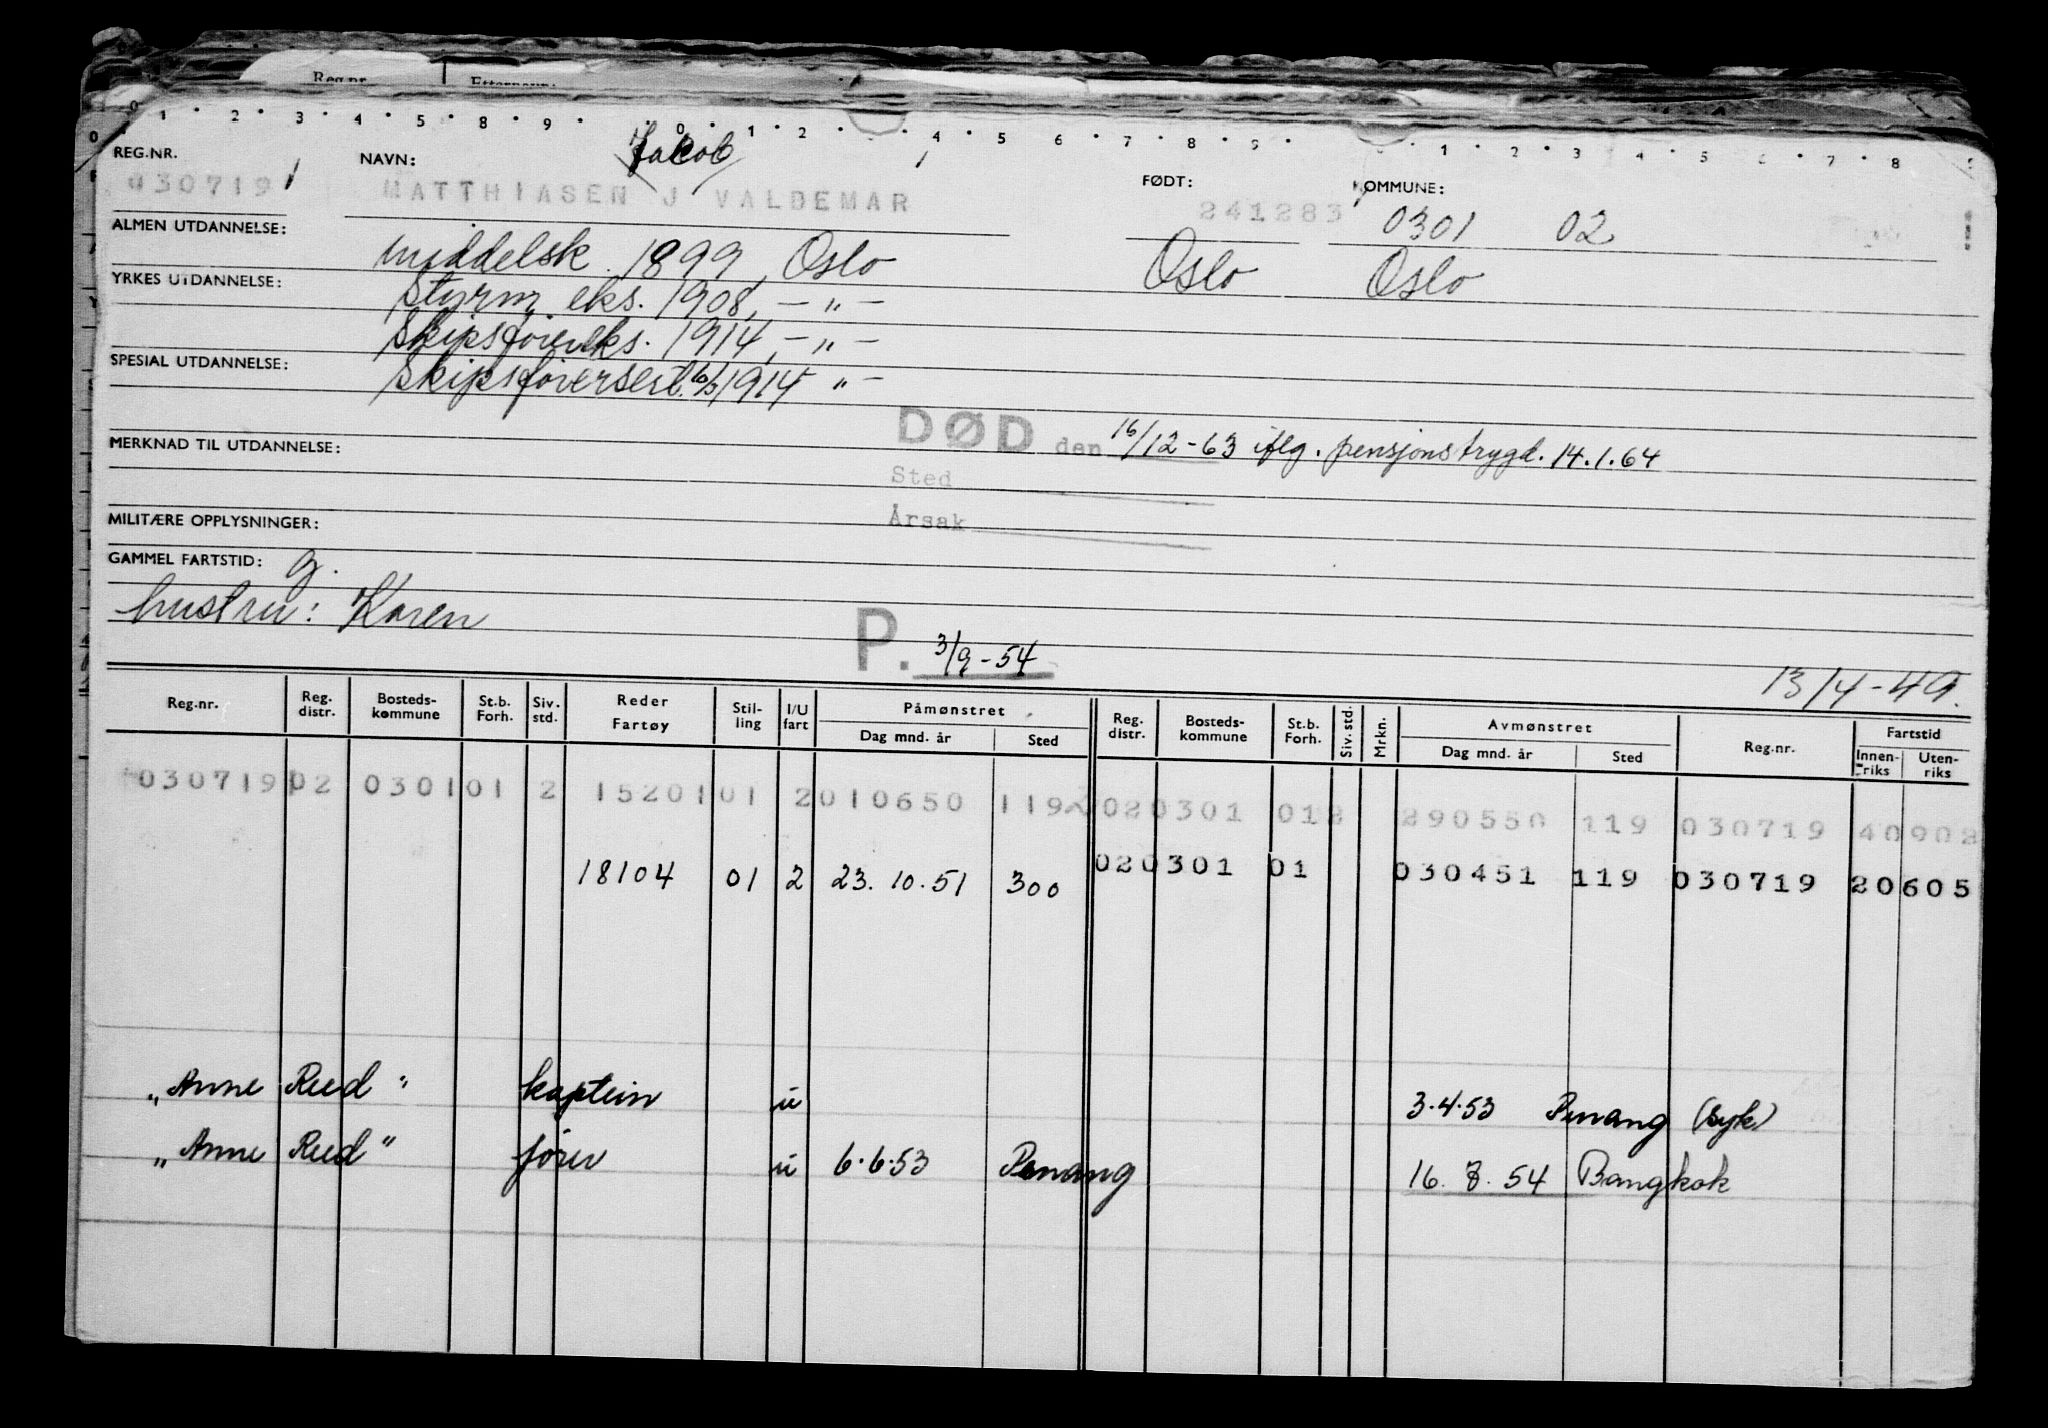 Reg.nr. Etternavn:
0 1 2 3 4 5 8 9 0 1 2 4 5 6 7 8 9 1 2 3 4 5 6 7 8
REG.NR. NAVN: Jacob FØDT: KOMMUNE:
030719 MATTHIASEN J VALDEMAR 241283 0301 02
ALMEN UTDANNELSE: middelsk. 1899, Oslo Oslo Oslo
YRKES UTDANNELSE: Styrm. eks. 1908, — „ —
Skipsførereks. 1914, — „ —
SPESIAL UTDANNELSE: Skipsførersert. 1914 „ —
DØD den 16/12-63 iflg. pensjonstrygd. 14.1.64
MERKNAD TIL UTDANNELSE:
Sted
Årsak
MILITÆRE OPPLYSNINGER:
GAMMEL FARTSTID: g.
hustru: Karen
P. 3/9-54
13/4-49.
Reg.nr. Reg. distr. Bosteds- kommune St.b. Forh. Siv. std. Reder Fartøy Stil- ling I/U fart Påmønstret Dag mnd. år Sted Reg. distr. Bosteds- kommune St.b. Forh. Siv. std. Mrkn. Avmønstret Dag mnd. år Sted Reg.nr. Fartstid Innen- riks Uten- riks
030719 02 0301 01 2 15201 01 2 010650 119 02 0301 01 2 290550 119 030719 40902
18104 01 2 23.10.51 300 02 0301 01 030451 119 030719 20605
„Anne Reed" kaptein u 3.4.53 Penang (syk)
„Anne Reed" fører u 6.6.53 Penang 16.8.54 Bangkok